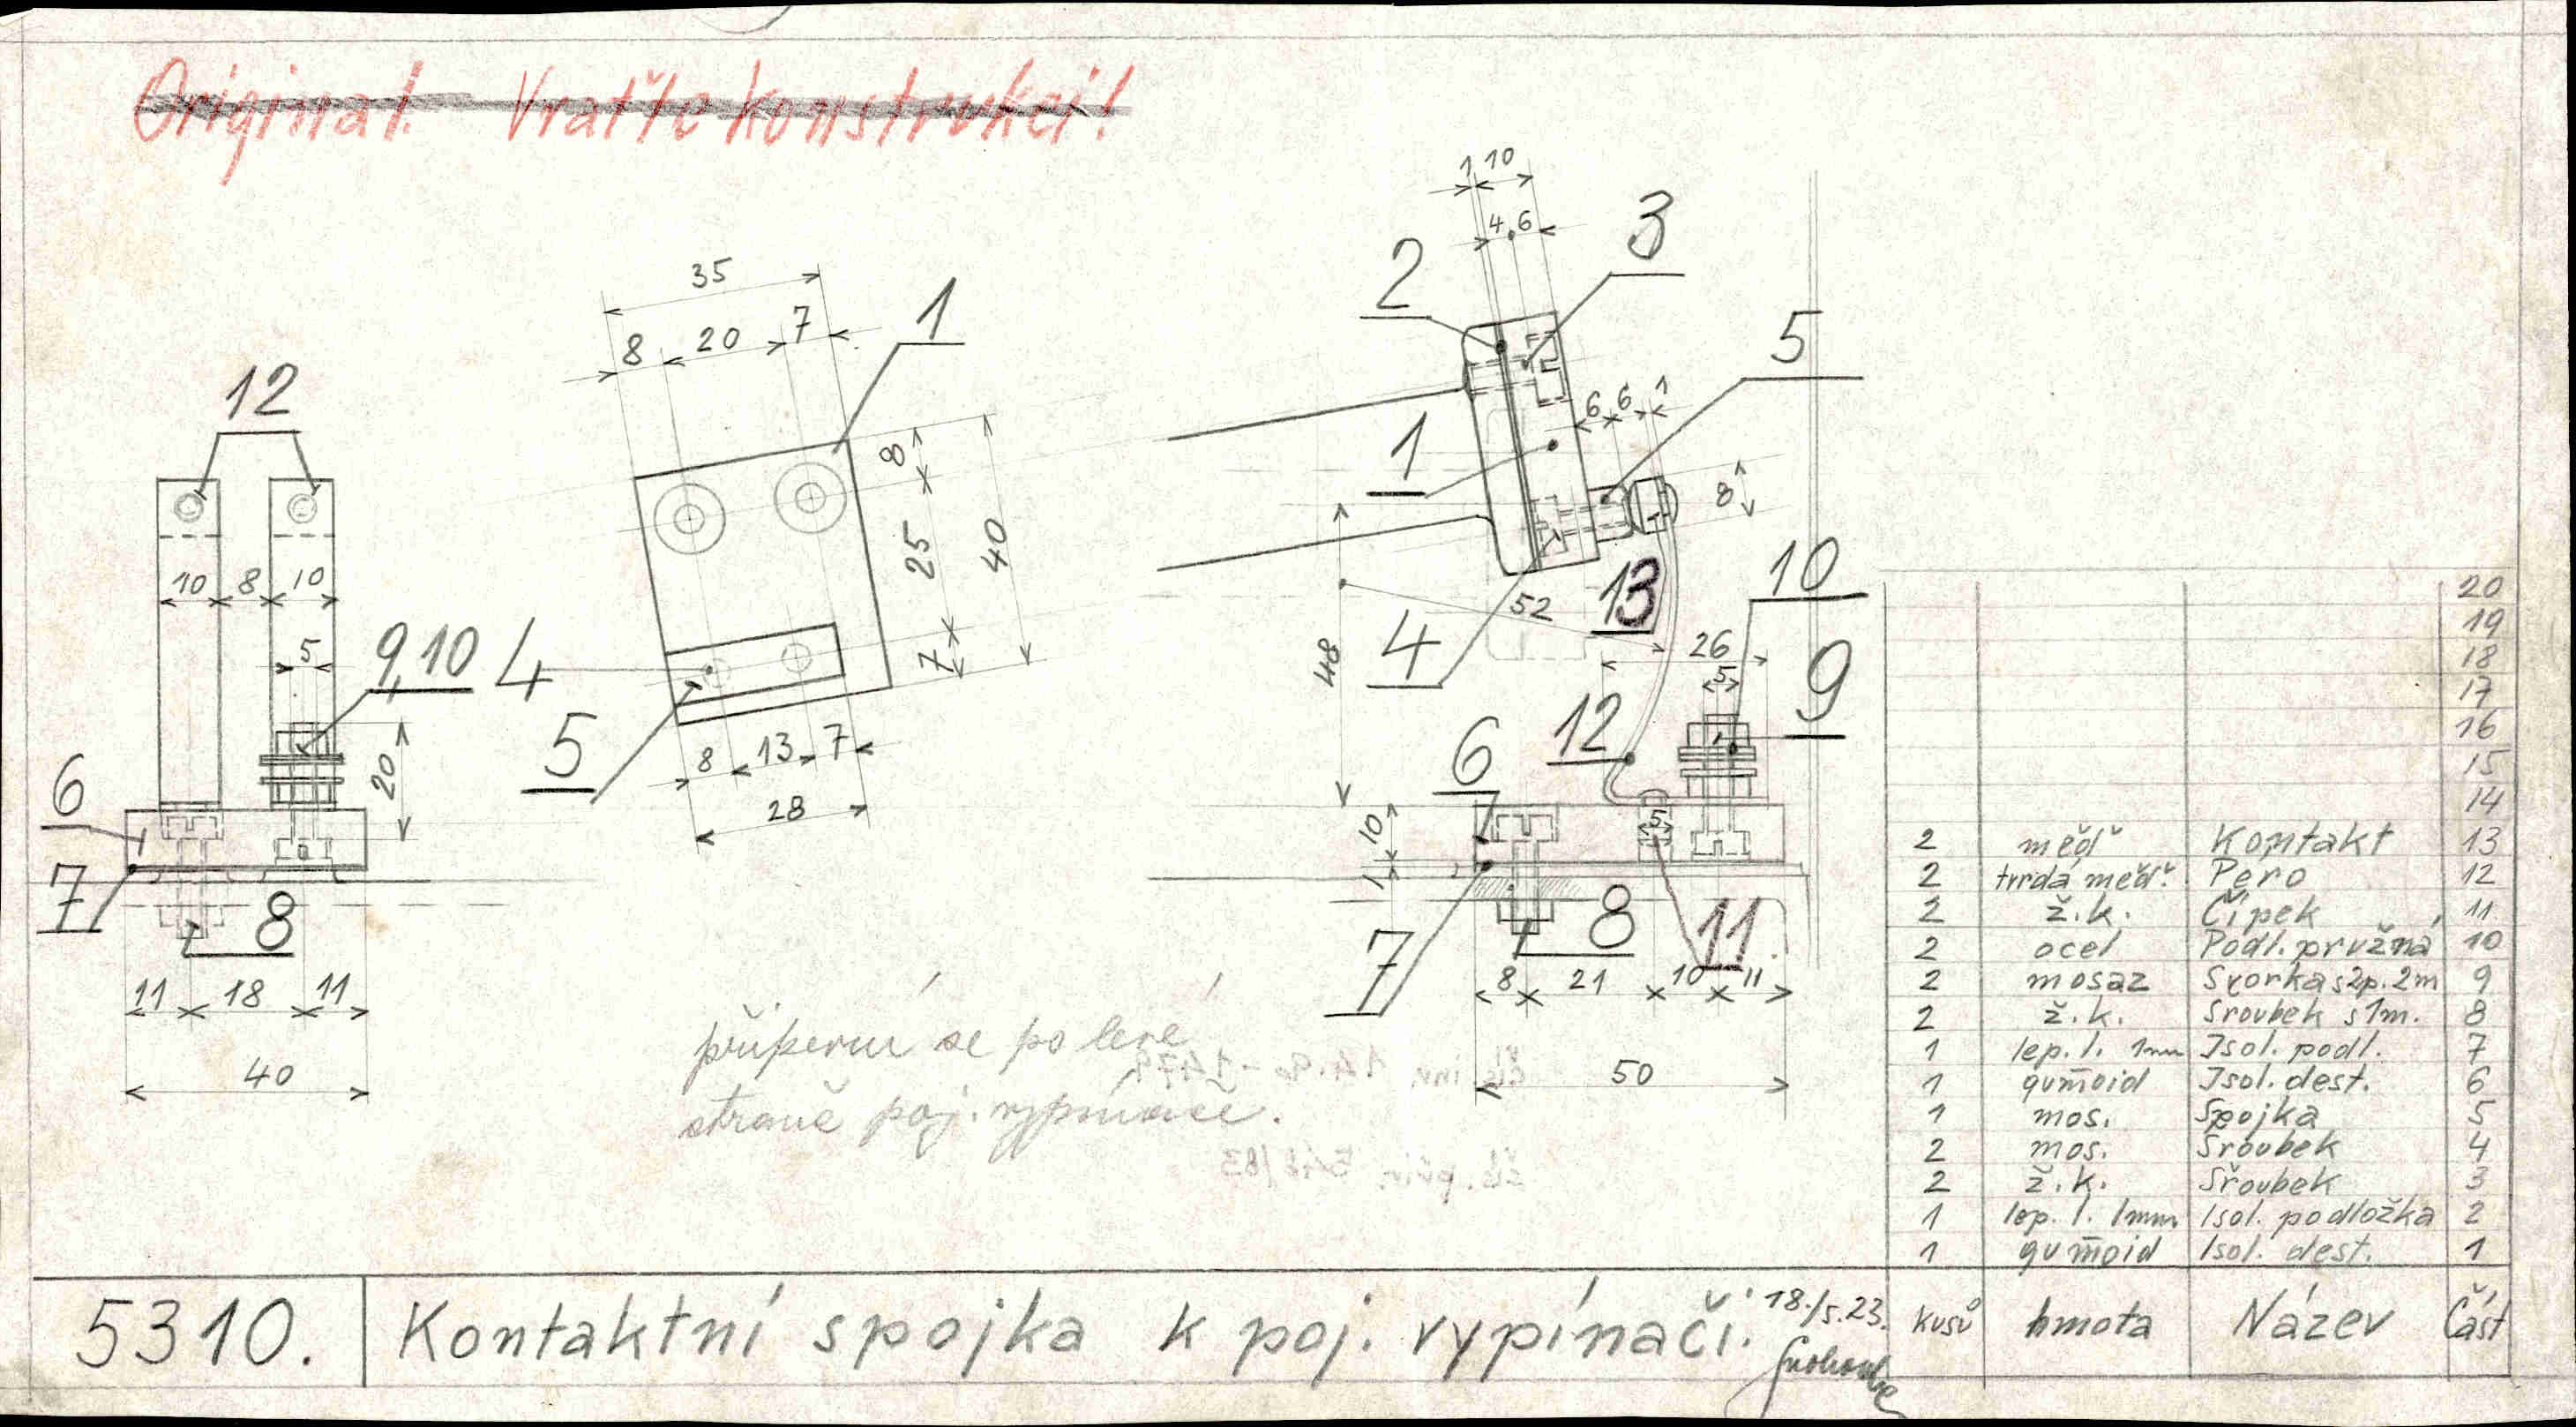 Original. Vraťte konstrukci!
1 10
4 6
2
3
5
6 6 1
1
8
13
10
4
52
48
26
5
9
12
6
10
5
1
7
8
11
8 21 10 11
50
35
8 20 7
1
8
25
40
7
4
5
8 13 7
28
12
10 8 10
5
9,10
20
6
7
8
11 18 11
40
připevní se po levé
straně poj. vypínače.
20
19
18
17
16
15
14
2 měď Kontakt 13
2 tvrdá měď. Pero 12
2 ž.k. Čípek 11
2 ocel Podl. pružná 10
2 mosaz Svorka s 2p. 2m 9
2 ž.k. Šroubek s 1m. 8
1 lep. l. 1mm Isol. podl. 7
1 gum̄oid Isol. dest. 6
1 mos. Spojka 5
2 mos. Šroubek 4
2 ž.k. Šroubek 3
1 lep. l. 1mm Isol. podložka 2
1 gum̄oid Isol. dest. 1
kusů hmota Název Část
5310. Kontaktní spojka k poj. vypínači. 18./5.23.